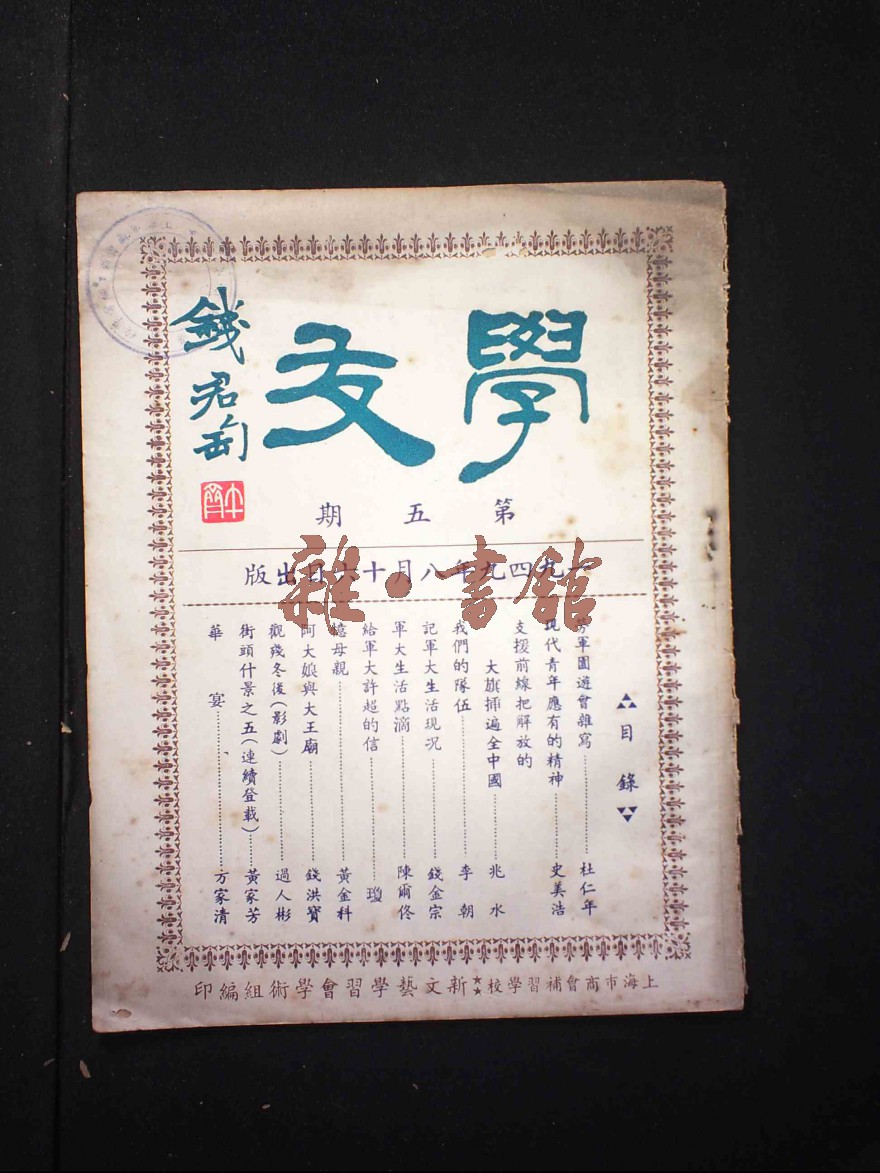 學友
錢君匋
午齋
第五期
一九四九年八月十六日出版
雜·書館
目錄
勞軍園遊會雜寫………杜仁年
現代青年應有的精神………史美浩
支援前線把解放的
大旗插遍全中國………兆水
我們的隊伍………李朝
記軍大生活現况………錢金宗
軍大生活點滴………陳爾佟
給軍大許超的信………瓊
憶母親………黃金科
阿大娘與大王廟………錢洪寶
觀殘冬後(影劇)………過人彬
街頭什景之五(連續登載)………黃家芳
華宴………方家清
上海市商會補習學校★★新文藝學習會學術組編印